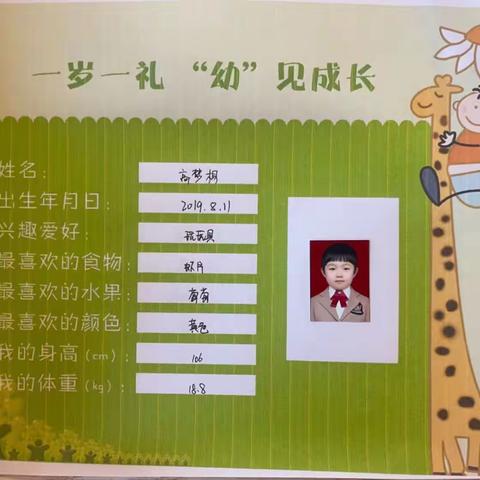 一岁一礼 “幼”见成长
姓名: 高梦桐
出生年月日: 2019.8.11
兴趣爱好: 玩玩具
最喜欢的食物: 虾片
最喜欢的水果: 葡萄
最喜欢的颜色: 黄色
我的身高(cm): 106
我的体重(kg): 18.8